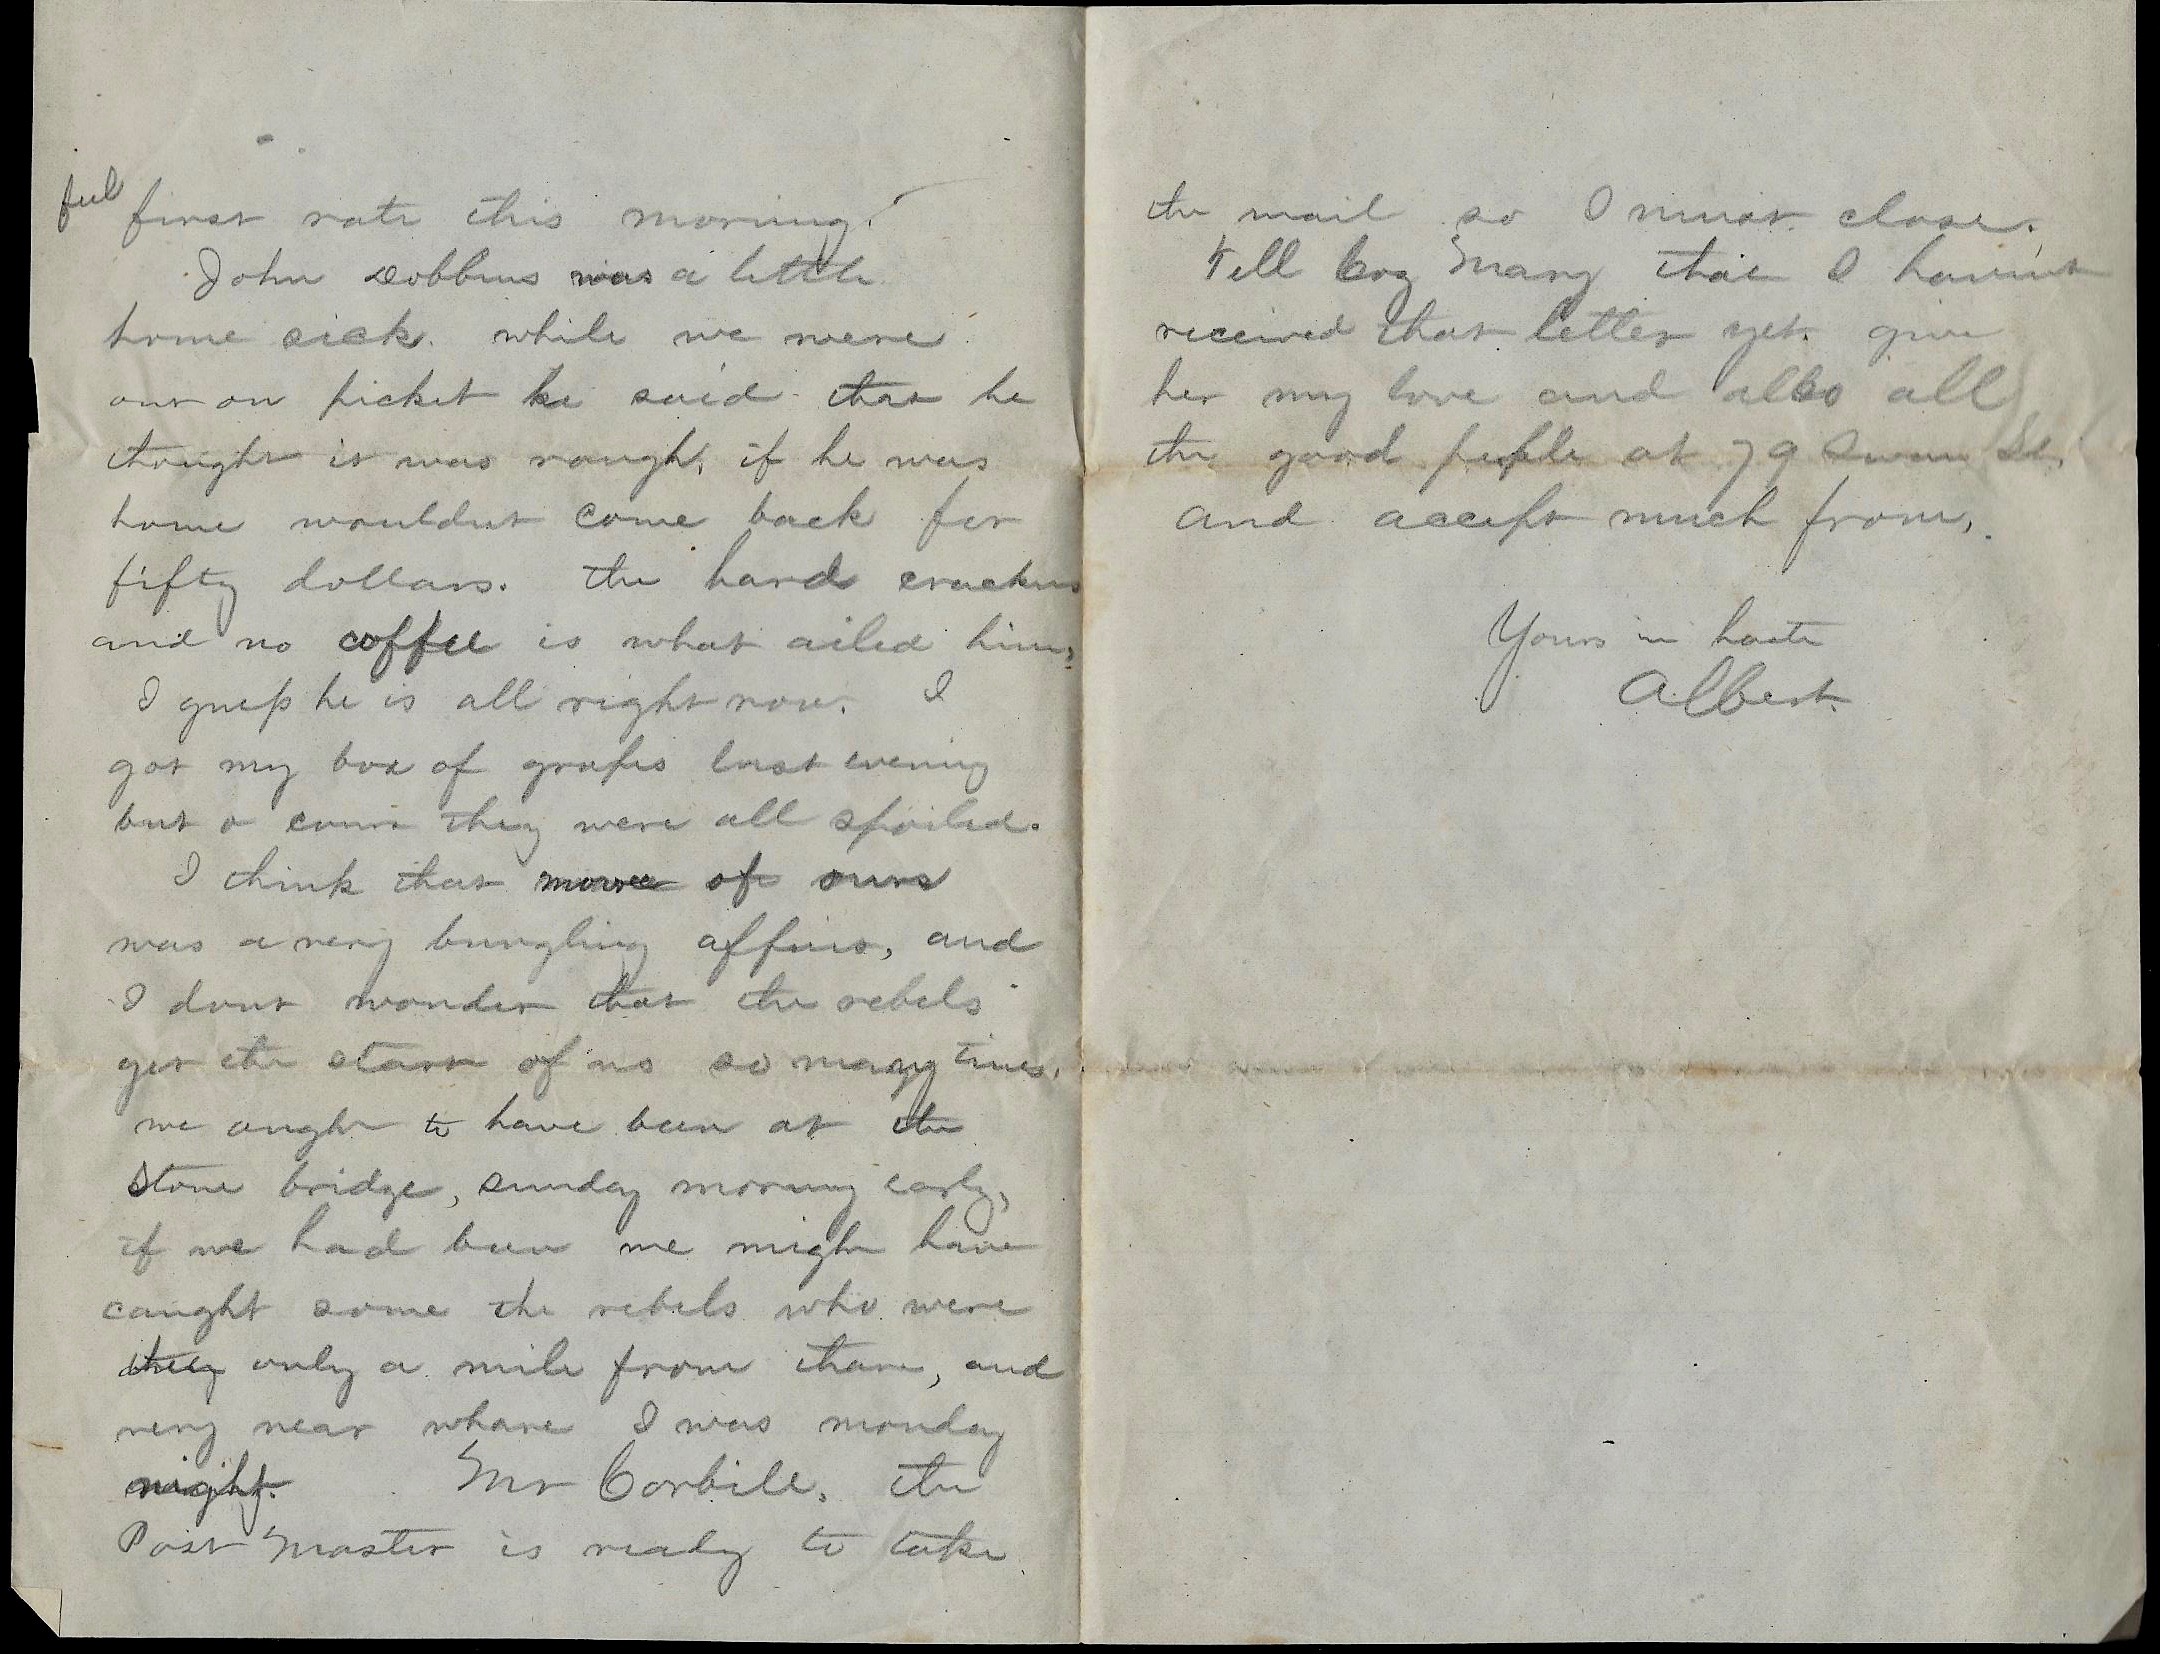 feel first rate this morning.
John Dobbins was a little
home sick. while we were
out on picket he said that he
thought it was rough, if he was
home wouldnt come back for
fifty dollars. the hard crackers
and no coffee is what ailed him,
I guess he is all right now. I
got my box of grapes last evening
but o cour they were all spoiled.
I think that move of ours
was a very bungling affair, and
I dont wonder that the rebels
get the start of us so many times.
we ought to have been at the
stone bridge, sunday morning early,
if we had been we might have
caught some the rebels who were
they only a mile from thare, and
very near whare I was monday
night. Mr Corbill. the
Post Master is ready to take
the mail so I must close.
Tell Coz Mary that I havent
received that letter yet. give
her my love and also all
the good peple at 79 Swan St.
and accept much from,
Yours in haste
Albert.